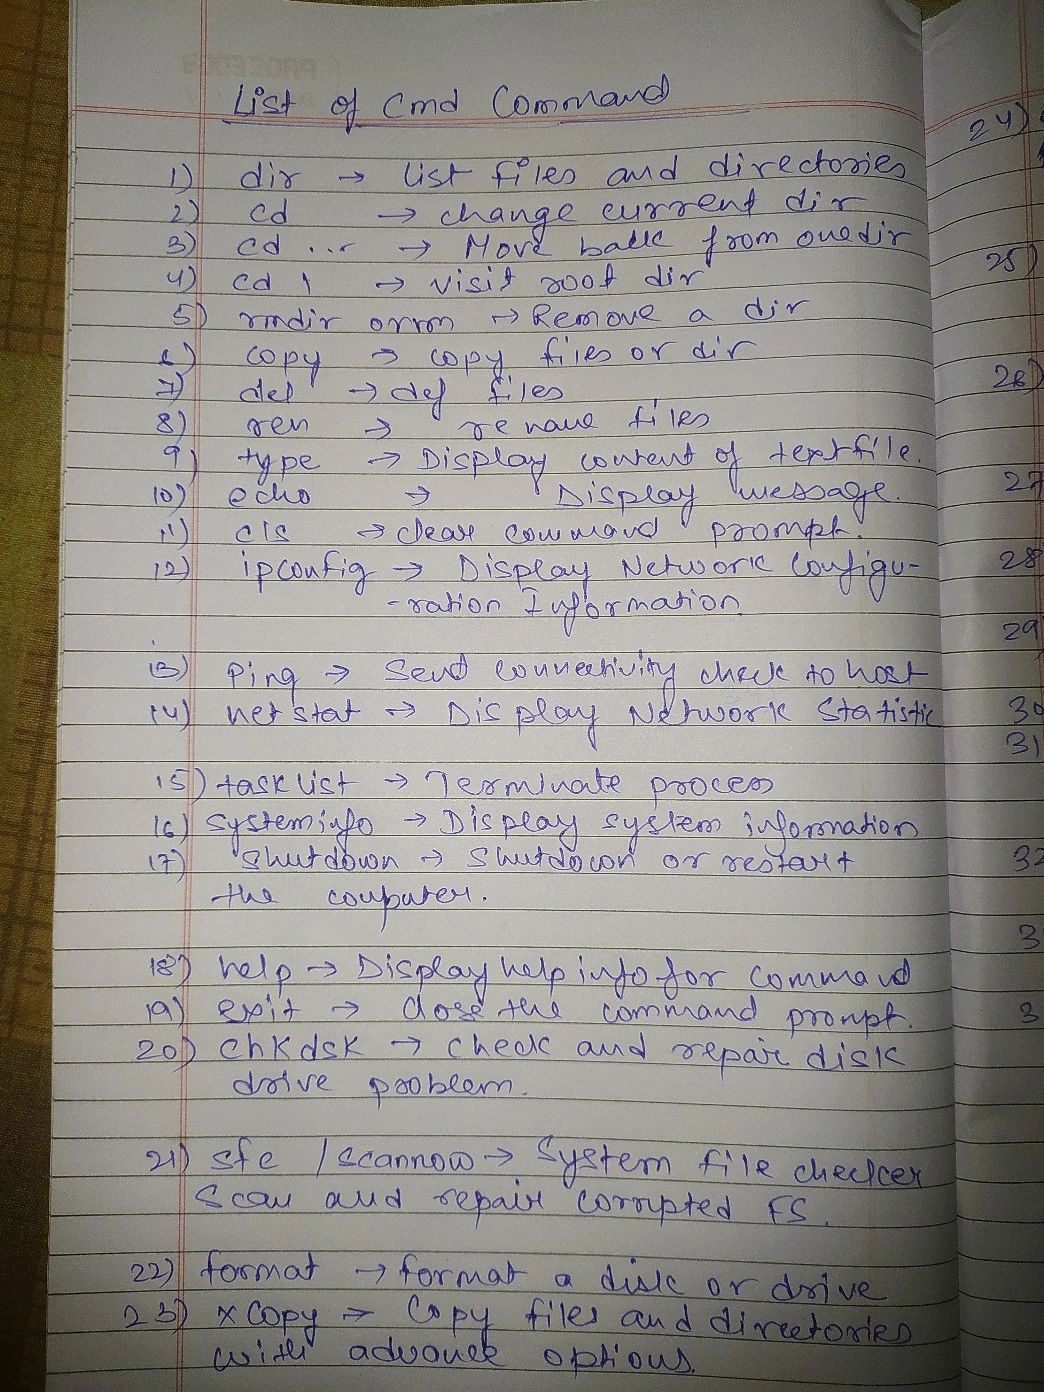 List of Cmd Command
1) dir → List files and directories
2) cd → change current dir
3) cd ... → Move back from one dir
4) cd \ → visit root dir
5) rmdir orrm → Remove a dir
6) copy → copy files or dir
7) del → del files
8) ren → rename files
9) type → Display content of text file.
10) echo → Display message.
11) cls → clear command prompt.
12) ipconfig → Display Network Configu-
-ration Information
13) Ping → Send connectivity check to host
14) netstat → Display Network Statistic
15) tasklist → Terminate process
16) systeminfo → Display system information
17) Shutdown → Shutdown or restart
the computer.
18) help → Display help info for command
19) exit → close the command prompt.
20) chkdsk → check and repair disk
drive problem.
21) sfc /scannow → System file checker
Scan and repair corrupted FS.
22) format → format a disk or drive
23) xcopy → Copy files and directories
with advance options.
24)
25)
26)
27
28
29
30
31
32
3
3